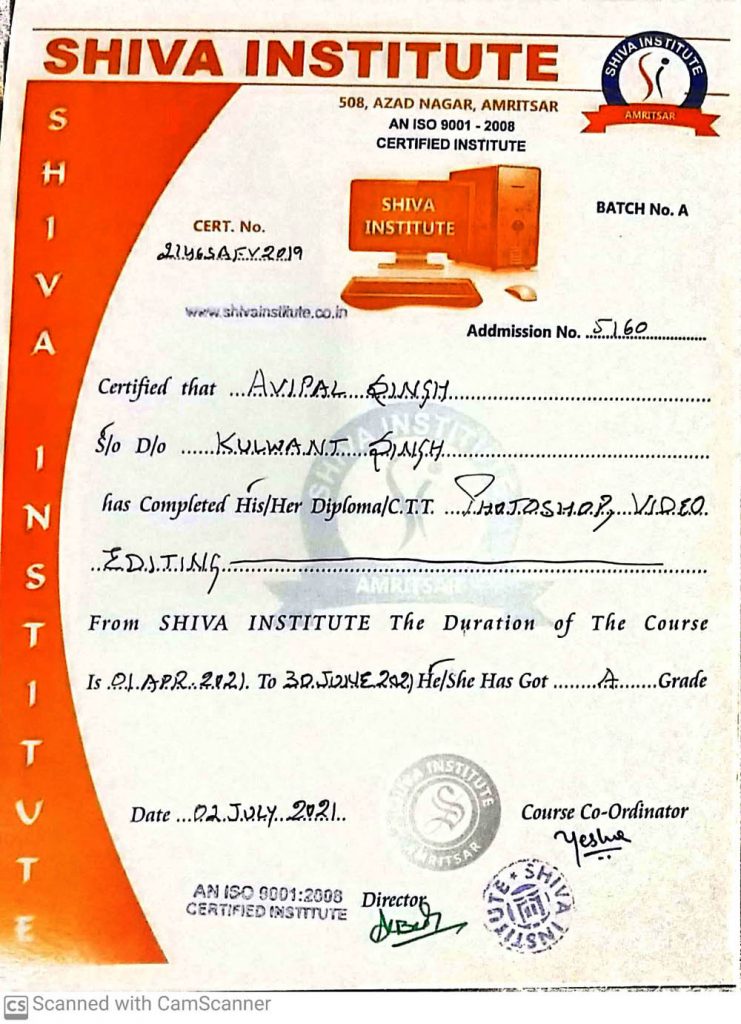 SHIVA INSTITUTE
SHIVA INSTITUTE
AMRITSAR
508, AZAD NAGAR, AMRITSAR
AN ISO 9001 - 2008
CERTIFIED INSTITUTE
SHIVA INSTITUTE
SHIVA
INSTITUTE
BATCH No. A
CERT. No.
2019
www.shivainstitute.co.in
Addmission No. 5160
Certified that AVIPAL SINGH
S/o D/o KULWANT SINGH
SHIVA INSTITUTE
has Completed His/Her Diploma/C.T.T. PHOTOSHOP, VIDEO
EDITING
AMRITSAR
From SHIVA INSTITUTE The Duration of The Course
Is 01.APR.2021. To 30.JUNE 2021 He/She Has Got A Grade
SHIVA INSTITUTE
AMRITSAR
Date 02 JULY 2021
Course Co-Ordinator
AN ISO 9001:2008
CERTIFIED INSTITUTE
Director
SHIVA INSTITUTE
CS Scanned with CamScanner